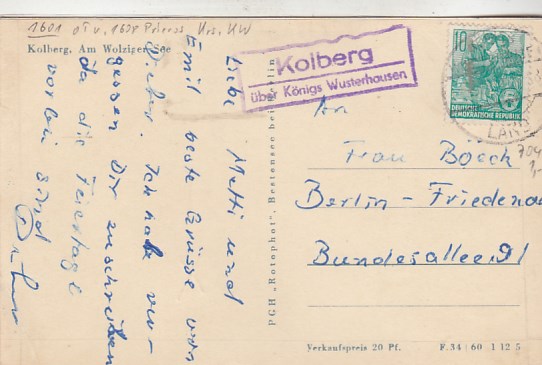 1601
Kolberg. Am Wolziger See
Liebe Metti und
Emil beste Grüsse von
Dieter. Ich habe ver-
gessen Dir zu schreiben
da die Feiertage
vorbei sind
Dieter
Kolberg
über Königs Wusterhausen
10
DEUTSCHE
DEMOKRATISCHE REPUBLIK
PGH „Rotophot", Bestensee bei Berlin
An
Frau Böeck
Berlin - Friedenau
Bundesallee 91
Verkaufspreis 20 Pf. F. 34 | 60 1 12 5